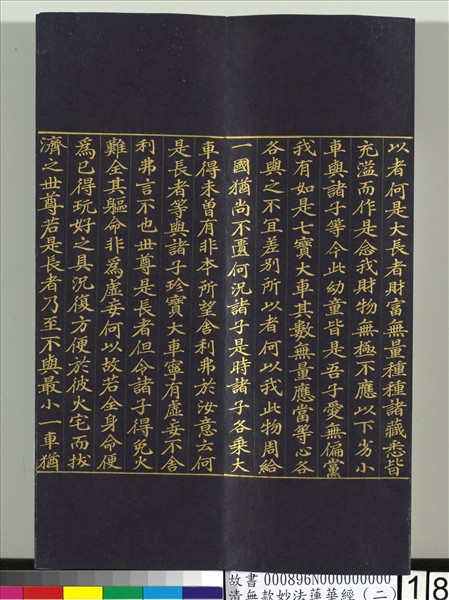 以者何是大長者財富無量種種諸藏悉皆
充溢而作是念我財物無極不應以下劣小
車與諸子等今此幼童皆是吾子愛無偏黨
我有如是七寶大車其數無量應當等心各
各與之不宜差別所以者何以我此物周給
一國猶尚不匱何況諸子是時諸子各乘大
車得未曾有非本所望舍利弗於汝意云何
是長者等與諸子珍寶大車寧有虛妄不舍
利弗言不也世尊是長者但令諸子得免火
難全其軀命非為虛妄何以故若全身命便
為已得玩好之具況復方便於彼火宅而拔
濟之世尊若是長者乃至不與最小一車猶
故書 000896N000000000
清無款妙法蓮華經（二）
18